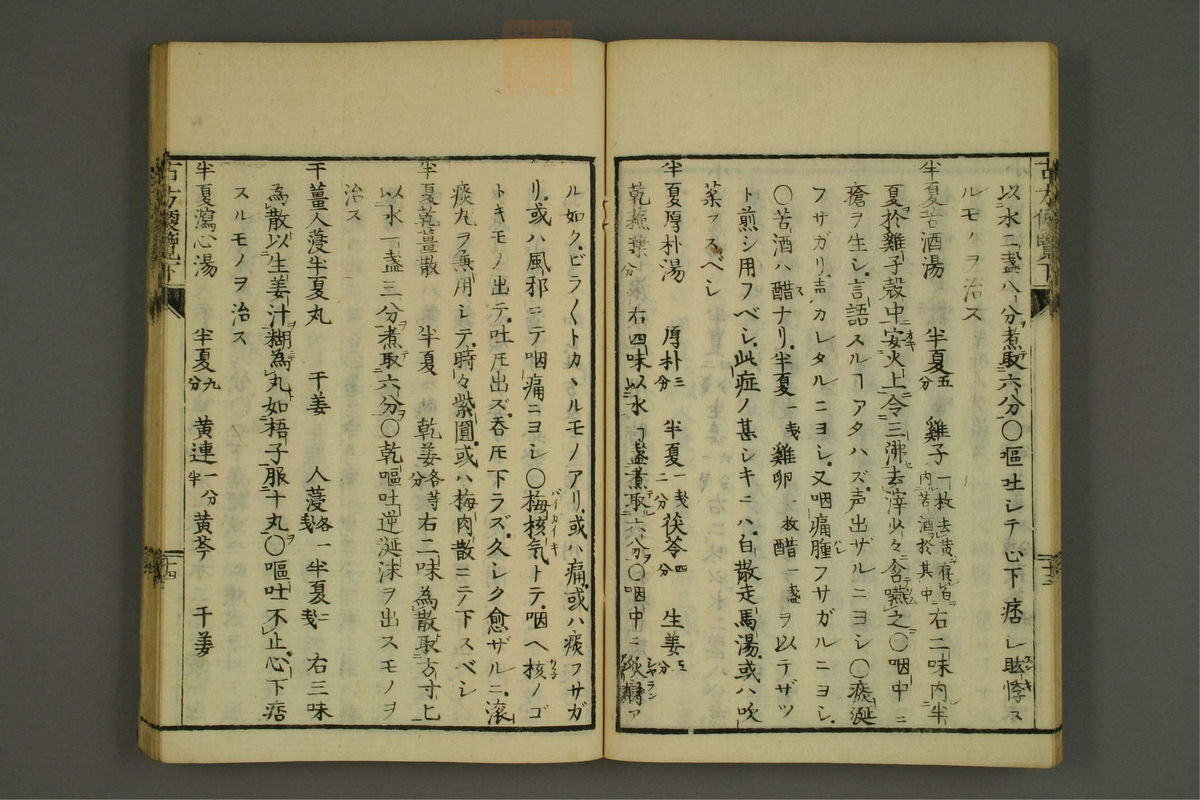 古方便覽下
以水二盞八分煮取六分〇嘔吐シテ心下痞シ眩悸ス
ルモノヲ治ス
半夏苦酒湯 半夏五分 雞子一枚去黃 内苦酒於其中 右二味内半
夏於雞子殼中安火上令三沸去滓少々含嚥之〇咽中ニ
瘡ヲ生シ言語スルヿアタハズ声出ザルニヨシ〇痰涎
フサガリ声カレタルニヨシ又咽痛腫フサガルニヨシ
〇苦酒ハ醋ナリ半夏一戔雞卵一枚醋一盞ヲ以テザツ
ト煎シ用フベシ此症ノ甚シキニハ白散走馬湯或ハ吹
薬ヲスベシ
半夏厚朴湯 厚朴三分 半夏一戔二分 茯苓四分 生姜五分
乾蘓葉分 右四味以水一盞煮取六分〇咽中ニ炙臠ア
十三
ル如クビラ〱トカヽルモノアリ或ハ痛或ハ痰フサガ
リ或ハ風邪ニテ咽痛ニヨシ〇梅核気トテ咽ヘ核ノゴ
トキモノ出テ吐𪜈出ズ呑𪜈下ラズ久シク愈ザルニ滚
痰丸ヲ兼用シテ時々紫圓或ハ梅肉散ニテ下スベシ
半夏乾薑散 半夏 乾姜各等分 右二味為散取方寸匕
以水一盞三分煮取六分〇乾嘔吐逆涎沫ヲ出スモノヲ
治ス
干薑人蓡半夏丸 干姜 人蓡各一戔 半夏二戔 右三味
為散以生姜汁糊為丸如梧子服十丸〇嘔吐不止心下痞
スルモノヲ治ス
半夏瀉心湯 半夏九分 黄連一分半 黄芩 干姜
古方便覽下
十四